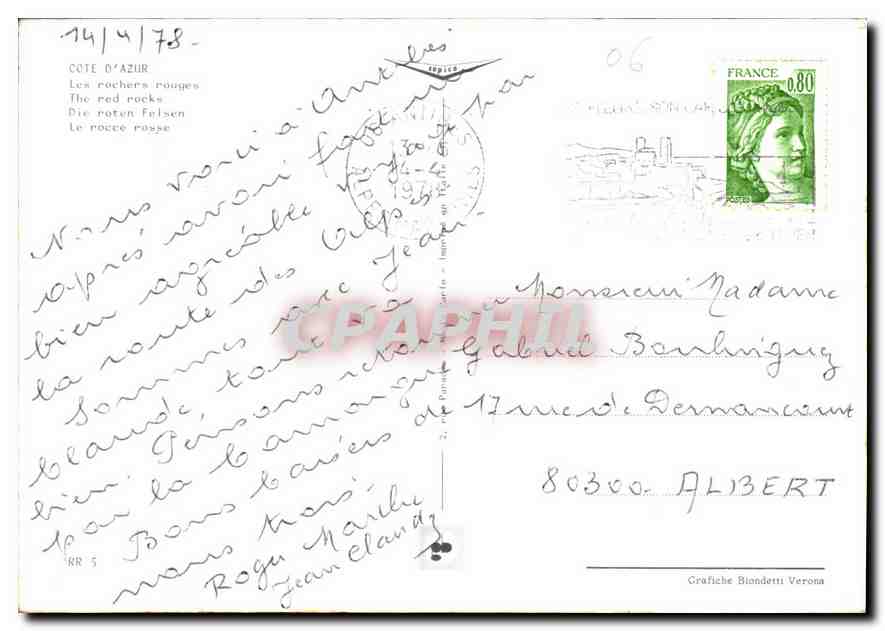 14/4/78-
COTE D'AZUR
Les rochers rouges
The red rocks
Die roten Felsen
Le rocce rosse
topica
06
FRANCE
0,80
POSTES
Nous voici à Antibes
après avoir fait un
bien agréable voyage par
la route des Alpes
Sommes avec Jean-
Claude, tout va
bien. Pensons retourner
par la Camargue
Bons baisers de
nous trois.
Roger Marthe
Jean Claude
RR 5
CPAPHIL
2, rue
Imprimé en Italie
Monsieur Madame
Gabriel
17 rue de Dernancourt
80300 - ALBERT
Grafiche Biondetti Verona